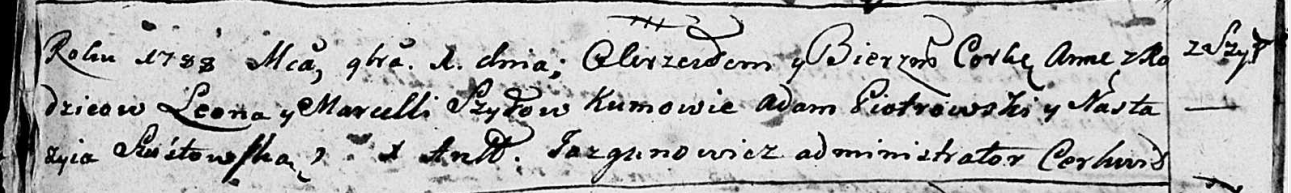 Roku 1788 Mca, 9bra. 1. dnia; Okrzciłem y Bierzm Corkę Annę z Ro
dzicow Leona y Marcelli Szyłow Kumowie Adam Piotrowski y Nasta
zyia X Antt. Jazgunowicz administrator Cerkwi
z Szył